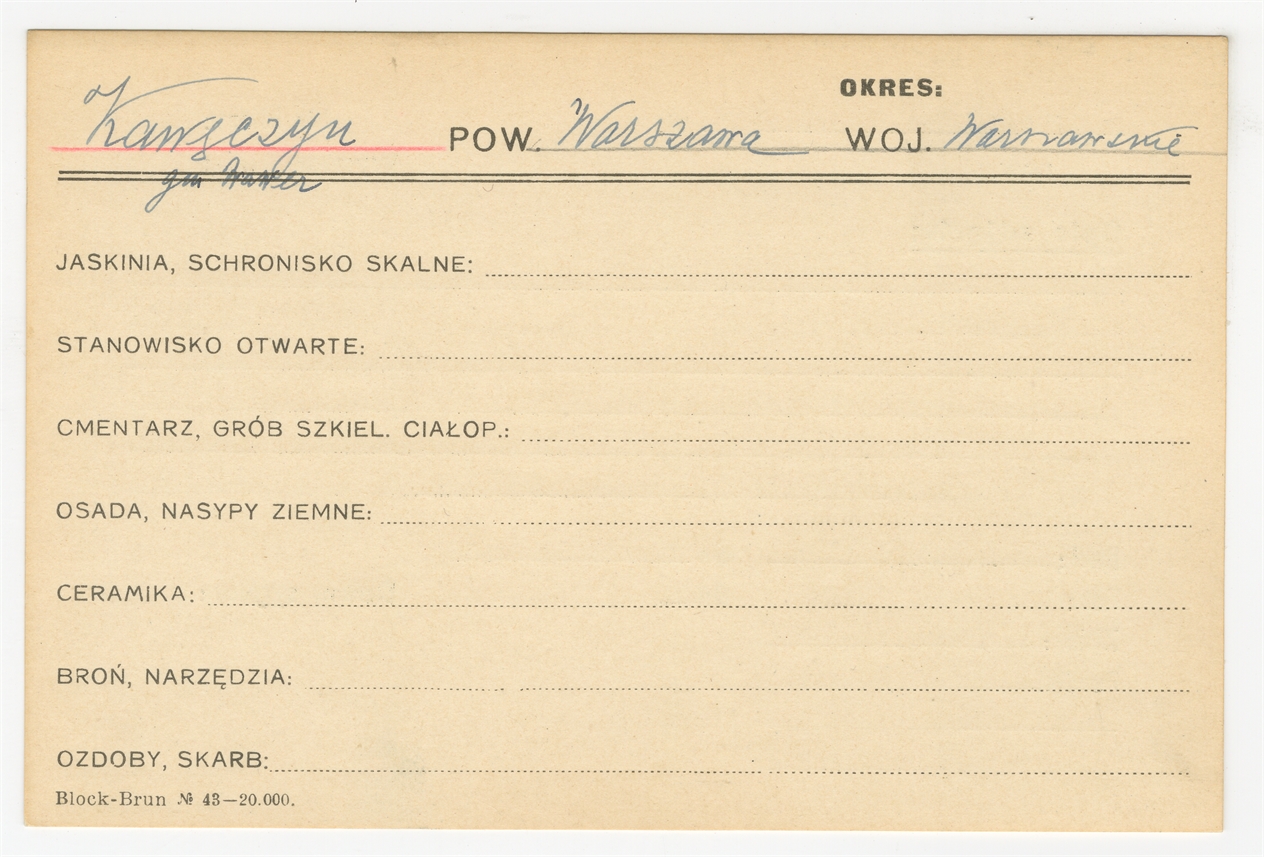 OKRES:
Kawęczyn POW. Warszawa WOJ. Warszawskie
gm Wawer
JASKINIA, SCHRONISKO SKALNE:
STANOWISKO OTWARTE:
CMENTARZ, GRÓB SZKIEL. CIAŁOP.:
OSADA, NASYPY ZIEMNE:
CERAMIKA:
BROŃ, NARZĘDZIA:
OZDOBY, SKARB:
Block-Brun № 43—20.000.